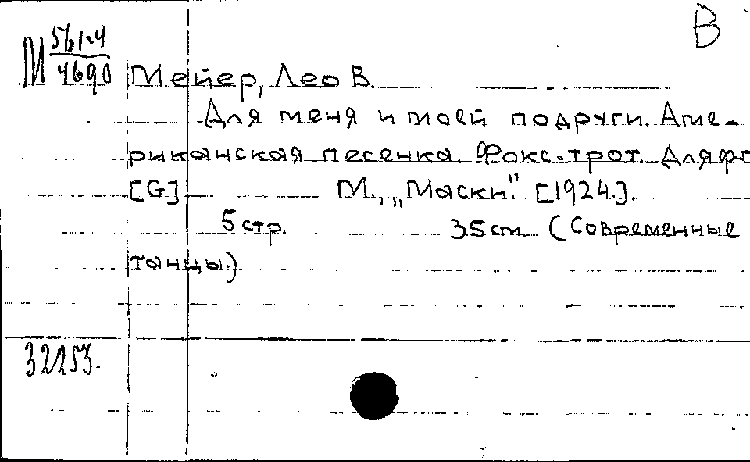 В
М 561-4
4690
Мейер, Лео В.
Для меня и моей подруги. Аме-
риканская песенка. Фокс-трот. Для фо
[G] М., „Маски". [1924.].
5 стр. 35 cm (Современные
танцы.)
32253.